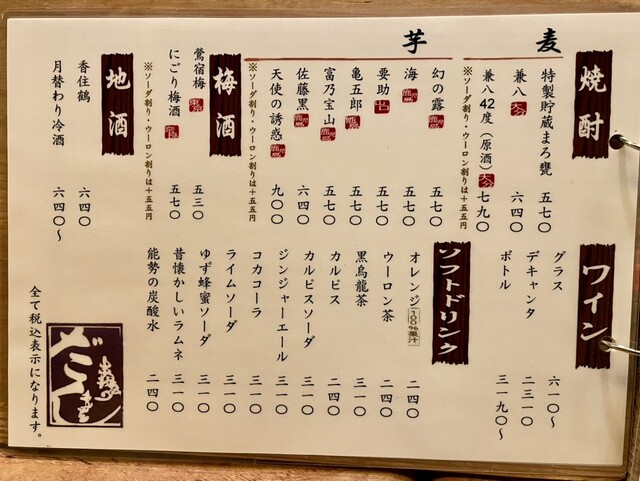 焼酎
麦
特製貯蔵まろ甕 五七〇
兼八 大分 六四〇
兼八42度(原酒) 大分 七九〇
※ソーダ割り・ウーロン割りは+五五円
芋
幻の露 五七〇
海 鹿児島 五七〇
要助 五七〇
亀五郎 鹿児島 五七〇
富乃宝山 鹿児島 五七〇
佐藤黒 鹿児島 六四〇
天使の誘惑 鹿児島 九〇〇
※ソーダ割り・ウーロン割りは+五五円
梅酒
鶯宿梅 五三〇
にごり梅酒 五七〇
※ソーダ割り・ウーロン割りは+五五円
地酒
香住鶴 六四〇
月替わり冷酒 六四〇〜
ワイン
グラス 六一〇〜
デキャンタ 二三一〇
ボトル 三一九〇〜
ソフトドリンク
オレンジ 100%果汁 二四〇
ウーロン茶 二四〇
黒烏龍茶 三一〇
カルピス 二四〇
カルピスソーダ 三一〇
ジンジャーエール 三一〇
コカコーラ 三一〇
ライムソーダ 三一〇
ゆず蜂蜜ソーダ 三一〇
昔懐かしいラムネ 三一〇
能勢の炭酸水 二四〇
全て税込表示になります。